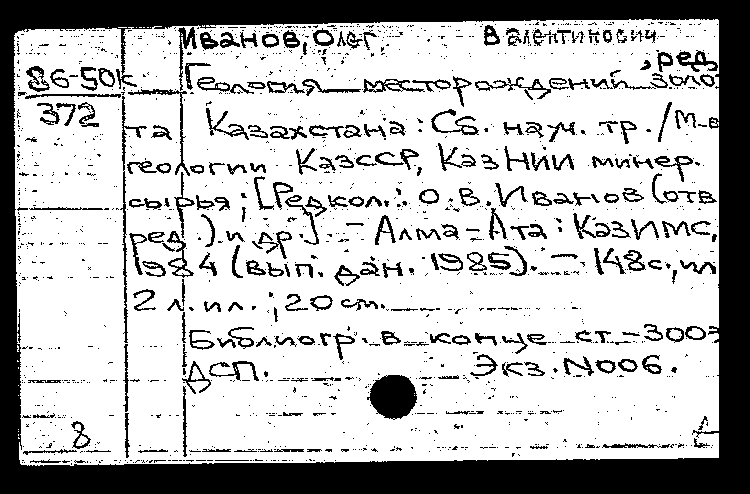 Иванов, Олег Валентинович
, ред.
86-50к Геология месторождений золо
372
та Казахстана : Сб. науч. тр. / М-в
геологии КазССР, КазНИИ минер.
сырья ; [Редкол.: О.В. Иванов (отв
ред.) и др.]. - Алма-Ата : КазИМС,
1984 (вып. дан. 1985). - 148 с., ил
2 л. ил. ; 20 см.
Библиогр. в конце ст. - 300э
ДСП. Экз. N006.
8